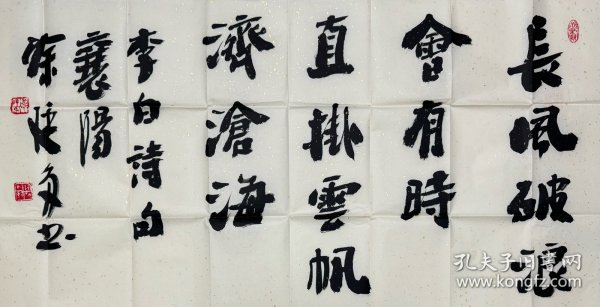 長風破浪
會有時
直掛雲帆
濟滄海
李白詩句
襄陽
徐
書
孔夫子旧书网